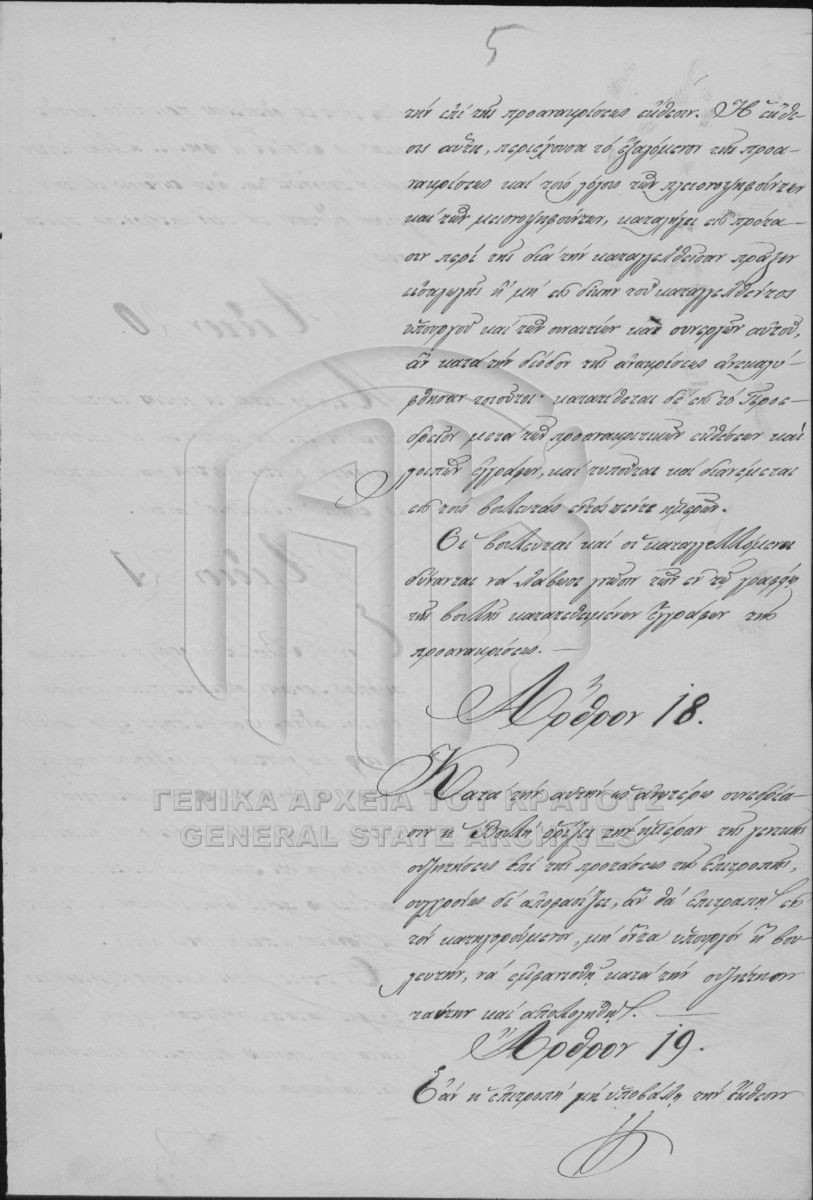 5
τὴν ἐπὶ τῆς προανακρίσεως ἔκθεσιν. Ἡ ἔκθε-
σις αὕτη, περιέχουσα τὸ ἐξαγόμενον τῆς προα-
νακρίσεως καὶ τοὺς λόγους τῶν πλειονοψηφούντων
καὶ τῶν μειονοψηφούντων, καταλήγει εἰς πρότα-
σιν περὶ τῆς διὰ τὴν καταγγελθεῖσαν πρᾶξιν
εἰσαγωγῆς ἢ μὴ εἰς δίκην τοῦ καταγγελθέντος
ὑπουργοῦ καὶ τῶν συναιτίων καὶ συνεργῶν αὐτοῦ,
ἂν κατὰ τὴν διόδον τῆς ἀνακρίσεως ἀνεκαλύ-
φθησαν τοιοῦτοι· κατατίθεται δὲ εἰς τὸ Προε-
δρεῖον μετὰ τῶν προανακριτικῶν ἐκθέσεων καὶ
λοιπῶν ἐγγράφων, καὶ τυποῦται καὶ διανέμεται
εἰς τοὺς βουλευτὰς ἐντὸς πέντε ἡμερῶν.
Οἱ βουλευταὶ καὶ οἱ καταγγελλόμενοι
δύνανται νὰ λάβωσι γνῶσιν τῶν ἐν τῷ γραφείῳ
τῆς βουλῆς κατατεθειμένων ἐγγράφων τῆς
προανακρίσεως. —
Ἄρθρον 18.
Κατὰ τὴν αὐτὴν ὡς ἀνωτέρω συνεδρία-
σιν ἡ Βουλὴ ὁρίζει τὴν ἡμέραν τῆς γενικῆς
συζητήσεως ἐπὶ τῆς προτάσεως τῆς ἐπιτροπῆς,
συγχρόνως δὲ ἀποφασίζει, ἂν θὰ ἐπιτραπῇ εἰς
τὸν κατηγορούμενον, μὴ ὄντα ὑπουργὸν ἢ βου-
λευτὴν, νὰ ἐμφανισθῇ κατὰ τὴν συζήτησιν
ταύτην καὶ ἀπολογηθῇ. —
Ἄρθρον 19.
Ἐὰν ἡ ἐπιτροπὴ μὴ ὑποβάλῃ τὴν ἔκθεσιν
ΓΕΝΙΚΑ ΑΡΧΕΙΑ ΤΟΥ ΚΡΑΤΟΥΣ
GENERAL STATE ARCHIVES